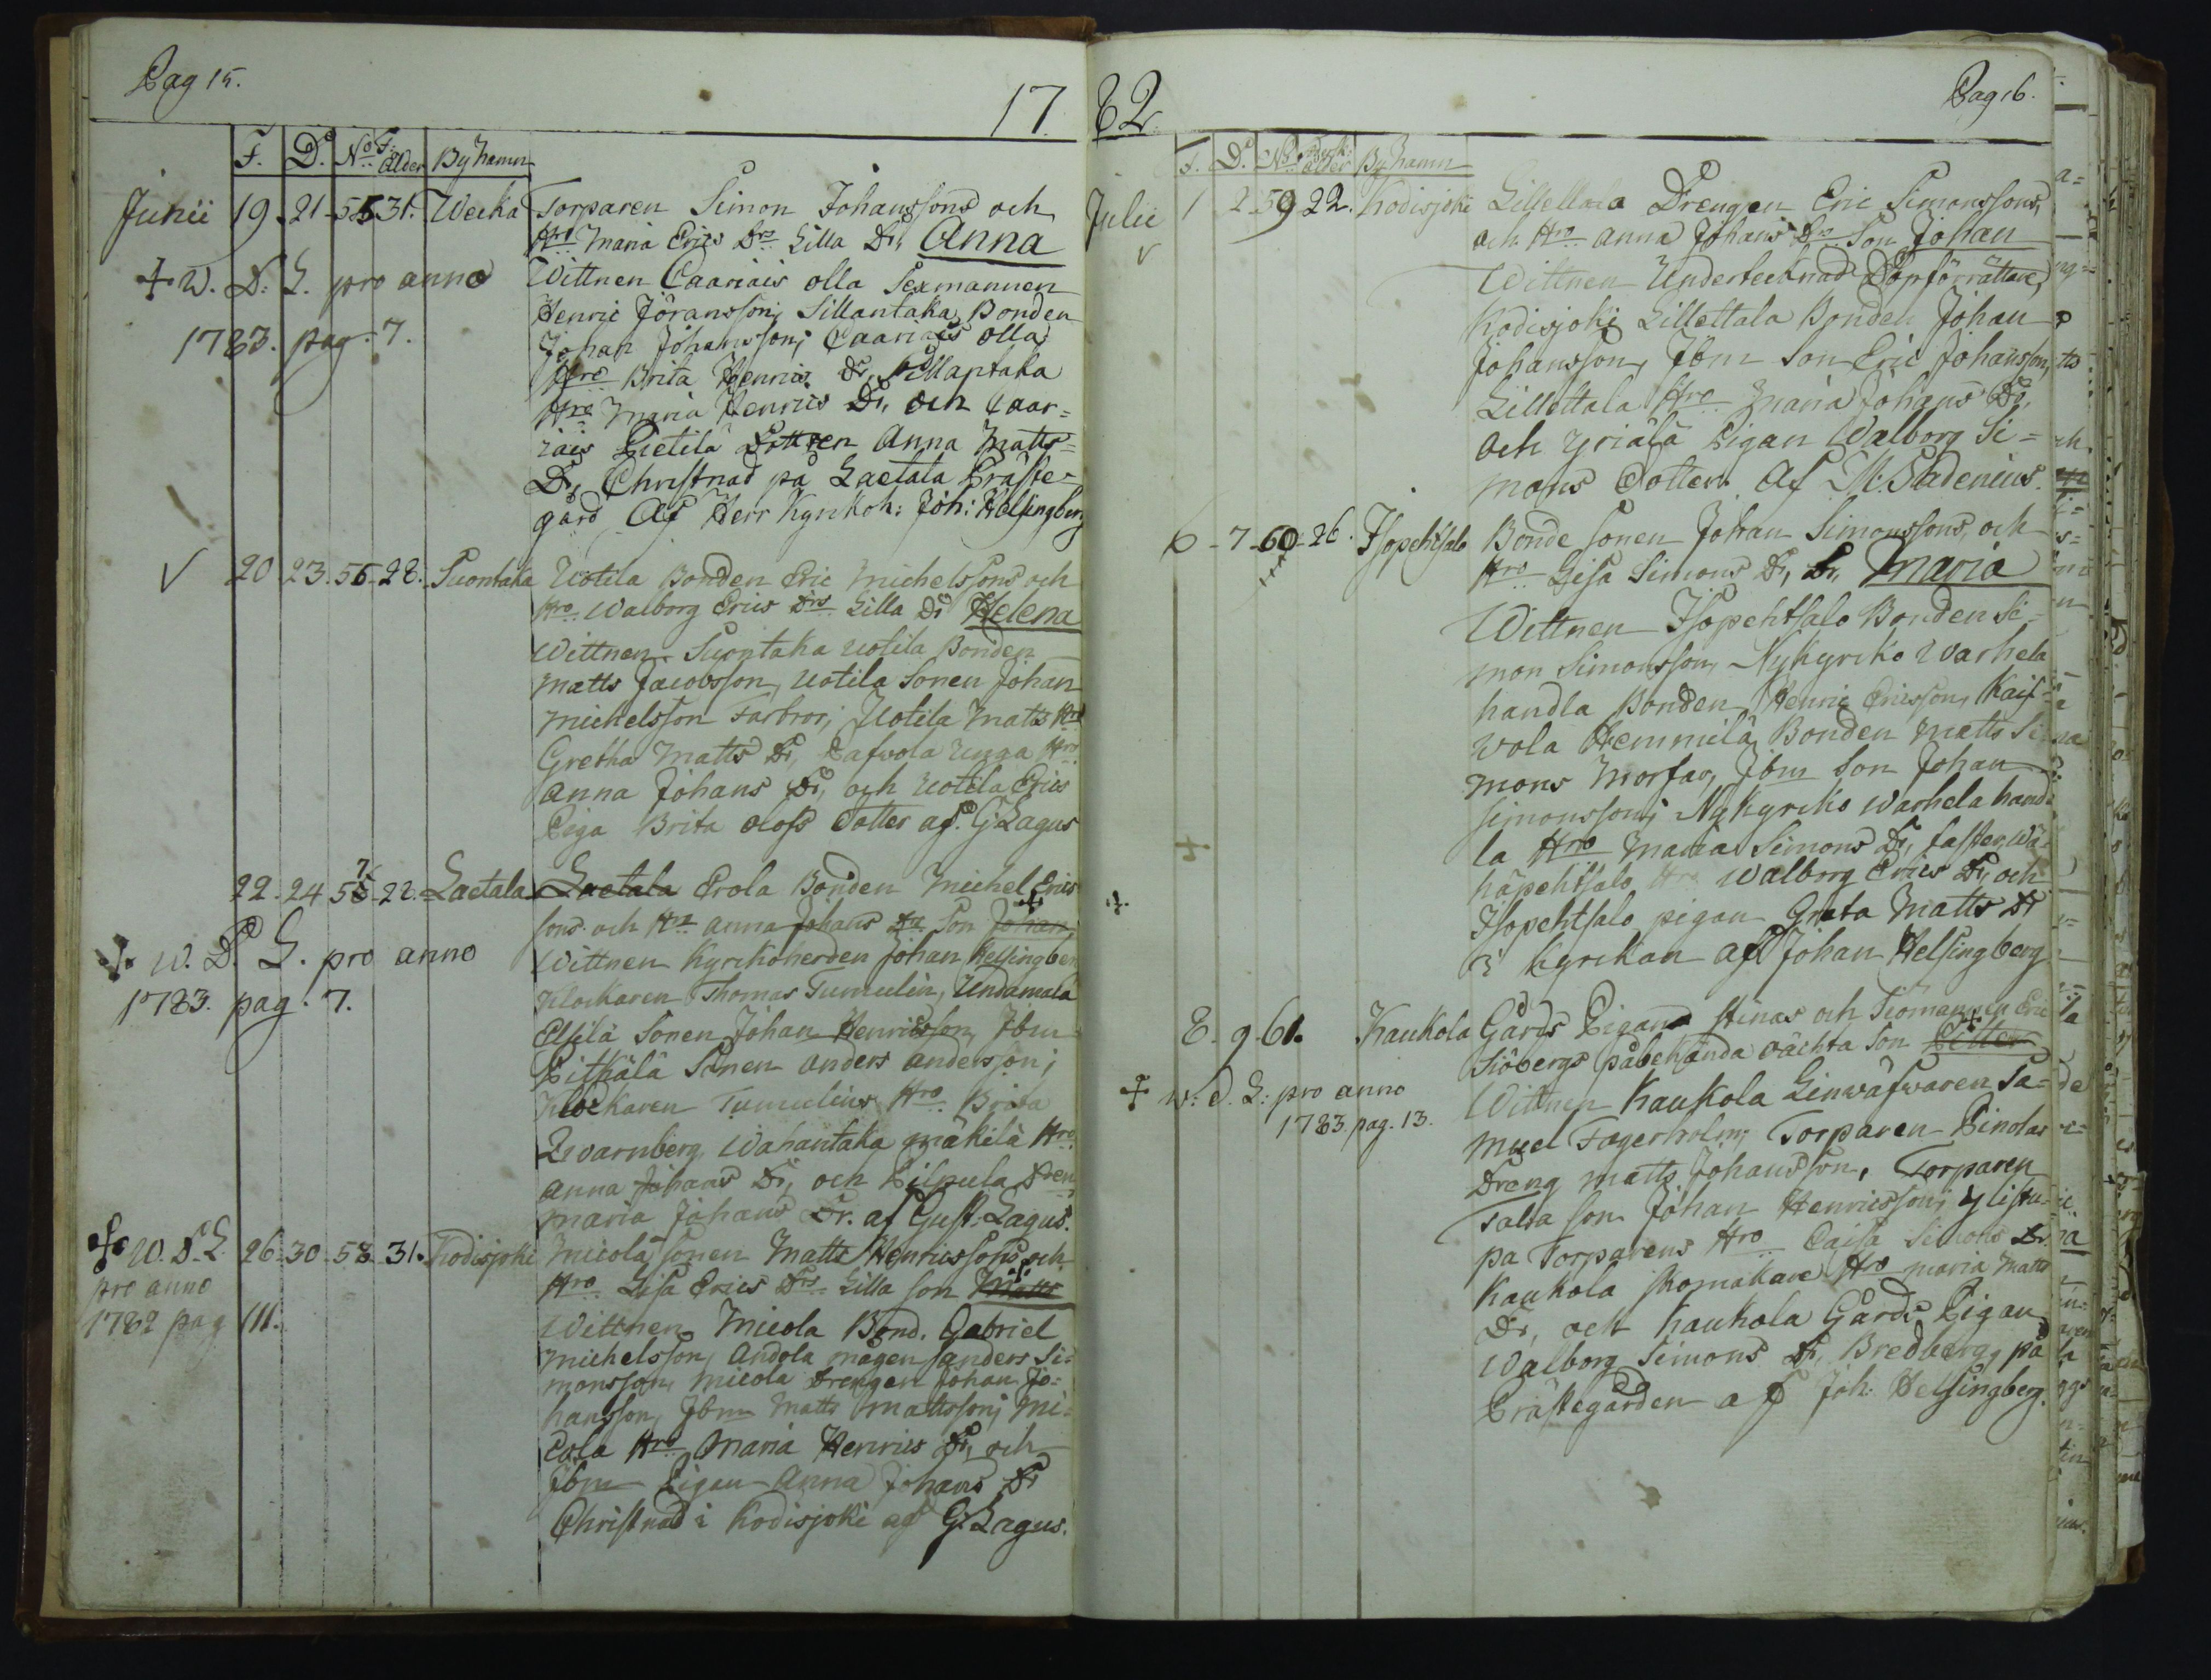 Pag 15.
17
F. D. No F: ålder By hamn
Junii 19. 21. 55 31. Wecka Torparen Simon Johanssons och
Hro Maria Erics Drs Lilla Dr, Anna
+ w. D. L. pro anno
1783. pag. 7.
Wittnen Caariais olla Sexmannen
Henric Jöransson, Sillantaka Bonden
Johan Johansson; Caariais olla
Hro Brita Henrics Dr, Sillantaka
Hro Maria Henrics Dr, och Caar=
iais Pietilä Dottren Anna Matts=
Dr, Christnad på Laetala Präste=
gård Af Herr Kyrkoh: Joh: Helsingberg
20. 23. 56. 28. Suontaka Uotila Bonden Eric Michelssons och
Hro Walborg Erics Drs Lilla Dr Helena
Wittnen Suontaka Uotila Bonden
Matts Jacobsson, Uotila Sonen Johan
Michelsson Farbror; Uotila Matts Hro
Gretha Matts Dr, Cafwola Unga Hro
Anna Johans Dr, och Uotila Erics
Piga Brita Olofs Dotter af G Lagus
22. 24 57. 22. Laetala Laetala Erola Bonden Michel Erics
sons och Hro Anna Johans Drs Son Johan,
w. D. L. pro anno
1783. pag. 7.
Wittnen Kyrkoherden Johan Helsingberg
Klockaren Thomas Tumulin, Undamala
Elsilä Sonen Johan Henricsson, Jbm
Pitkälä Sonen Anders Andersson;
Klockaren Tumulins Hro Brita
Qvarnberg, Wahantaka Mäkilä Hro
Anna Johans Dr, och Pilpula
Maria Johans Dr. af Gust: Lagus.
w. D. L.
pro anno
1782 pag 111.
26. 30. 58. 31. Kodisjoki Micola Sonen Matts Henricssons och
Hro Lisa Erics Drs Lilla Son Matts
Wittnen Micola Bond. Gabriel
Michelsson, Andola mågen Anders Si=
monsson, Micola Drengen Johan Jo=
hansson, Jbm Matts Mattsson; Mi=
cola Hro Maria Henrics Dr, och
Jbm Pigan Anna Johans Dr
Christnad i Kodisjoki af G. Lagus.
82.
Pag 16.
F. D. No ålder By hamn
Julii 1 2 59 22. Kodisjoki Lillettala Drengen Eric Simonssons,
och Hro Anna Johans Drs Son Johan
Wittnen Undertecknad Döpförrättare,
Kodisjoki Lillettala Bonden Johan
Johansson, Jbm Son Eric Johansson,
Lillettala Hro Maria Johans Dr,
och Yriälä Pigan Walborg Si=
mons Dotter. Af M: Padenius.
6 - 7. 60. 26. Isopehtsalo Bonde sonen Johan Simonssons, och
Hro Lisa Simons Dr, Dr, Maria
Wittnen Isopehtsalo Bonden Si=
mon Simonsson, Nykyrko Warhela
handla Bonden Henric Ericsson, Kaif=
wola Hemmilä Bonden Matts Si
mons Morfar, Jbm Son Johan
Simonsson; Nykyrko Warhela hand
la Hro Maria Simons Dr, faster, Wä=
häpehtsalo Hro Walborg Erics Dr, och
Isopehtsalo pigan Greta Matts Dr
i Kyrkan af Johan Helsingberg
8. 9. 61. Kaukola Gårds Pigans Stinas och Siömannen Eric
Siöbergs påbekända oächta Son Petter
+ w: d. L: pro anno
1783. pag. 13.
Wittnen Kaukola Linwäfwaren Sa=
muel Fagerholm; Torparen Pinolas
Dreng Matts Johansson, Torparen
Talia son Johan Henricsson; Ylistu=
pa Torparens Hro Caisa Simons Dr.
Kaukola Skomakare Hro Maria Matts
Dr, och Kaukola Gårds Pigan
Walborg Simons Dr, Bredberg, på
Prästegården af Joh: Helsingberg.